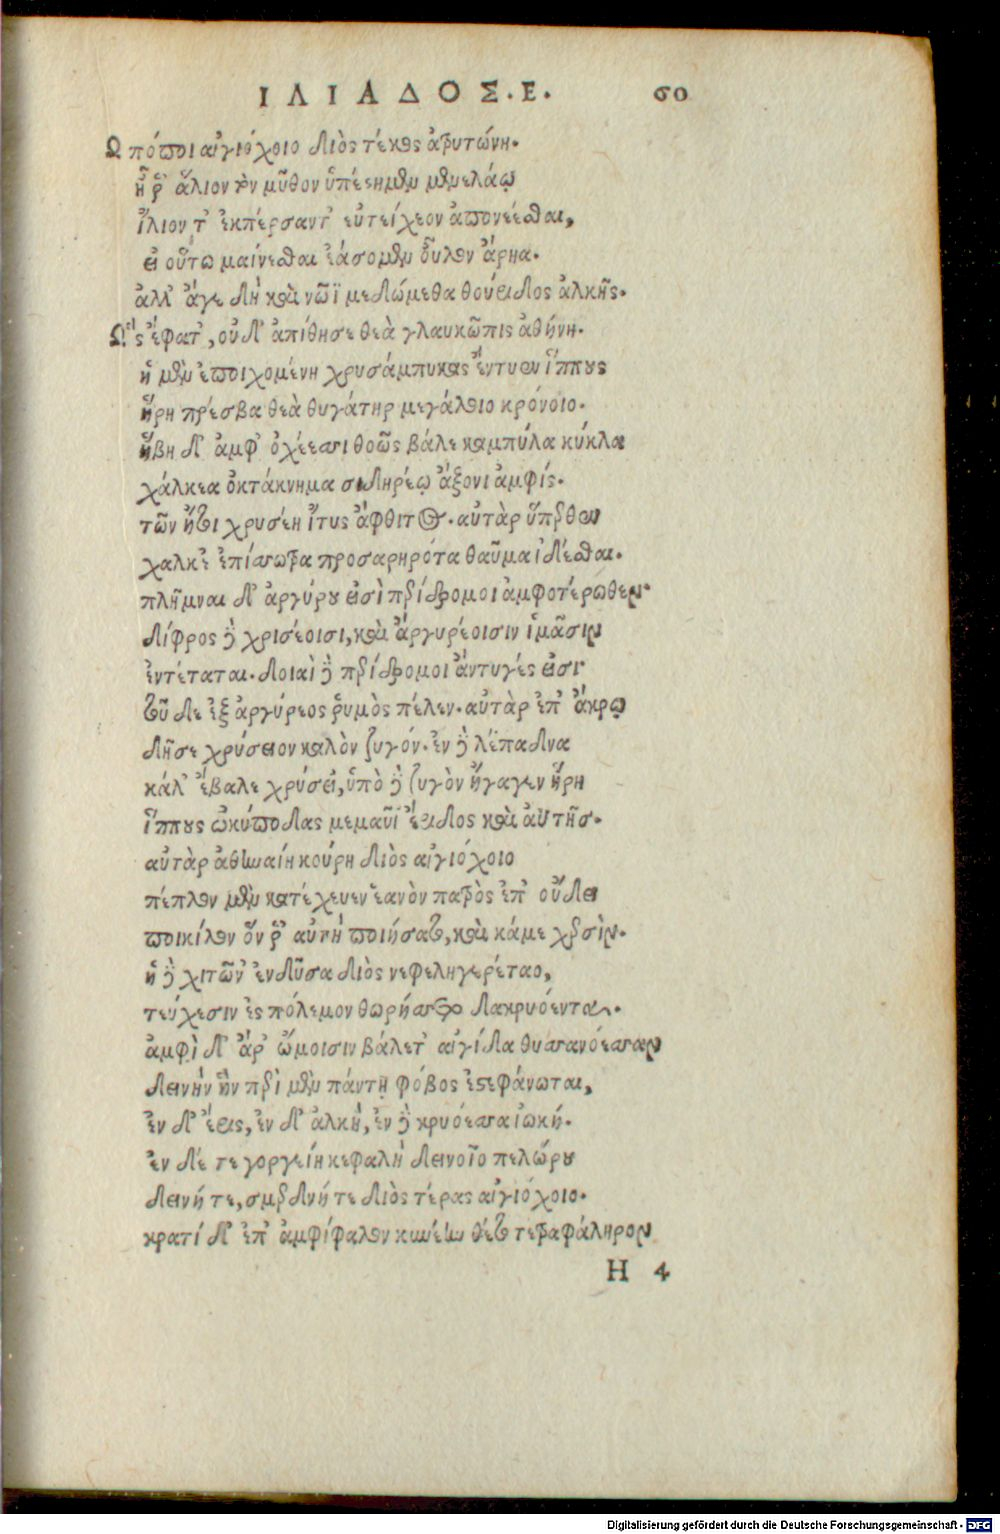 ΙΛΙΑΔΟΣ. Ε. σο
Ὢ πόποι αἰγιόχοιο Διὸς τέκος ἀτρυτώνη.
ἦ ῥ' ἅλιον τὸν μῦθον ὑπέστημεν μενελάῳ
ἴλιον τ' ἐκπέρσαντ' εὐτείχεον ἀπονέεσθαι,
εἰ οὕτω μαίνεσθαι ἐάσομεν οὖλον ἄρηα.
ἀλλ' ἄγε δὴ καὶ νῶϊ μεδώμεθα θούριδος ἀλκῆς.
Ὣς ἔφατ', οὐδ' ἀπίθησε θεὰ γλαυκῶπις ἀθήνη.
ἡ μὲν ἐποιχομένη χρυσάμπυκας ἔντυεν ἵππους
ἥρη πρέσβα θεὰ θυγάτηρ μεγάλοιο κρόνοιο.
ἥβη δ' ἀμφ' ὀχέεσσι θοῶς βάλε καμπύλα κύκλα
χάλκεα ὀκτάκνημα σιδηρέῳ ἄξονι ἀμφίς.
τῶν ἤτοι χρυσέη ἴτυς ἄφθιτος. αὐτὰρ ὕπερθεν
χαλκέ' ἐπίσσωτρα προσαρηρότα θαῦμα ἰδέσθαι.
πλῆμναι δ' ἀργύρου εἰσὶ περίδρομοι ἀμφοτέρωθεν.
δίφρος δὲ χρισέοισι, καὶ ἀργυρέοισιν ἱμᾶσιν
ἐντέταται. δοιαὶ δὲ περίδρομοι ἄντυγές εἰσι
τοῦ δε ἐξ ἀργύρεος ῥυμὸς πέλεν. αὐτὰρ ἐπ' ἄκρῳ
δῆσε χρύσειον καλὸν ζυγόν. ἐν δὲ λέπαδνα
κάλ' ἔβαλε χρύσει', ὑπὸ δὲ ζυγὸν ἤγαγεν ἥρη
ἵππους ὠκύποδας μεμαυῖ' ἔριδος καὶ ἀϋτῆς.
αὐτὰρ ἀθηναίη κούρη Διὸς αἰγιόχοιο
πέπλον μὲν κατέχευεν ἑανὸν πατρὸς ἐπ' οὔδει
ποικίλον ὅν ῥ' αὐτὴ ποιήσατο, καὶ κάμε χερσὶν.
ἡ δὲ χιτῶν' ἐνδῦσα Διὸς νεφεληγερέταο,
τεύχεσιν ἐς πόλεμον θωρήσσετο δακρυόεντα.
ἀμφὶ δ' ἄρ' ὤμοισιν βάλετ' αἰγίδα θυσσανόεσσαν
δεινὴν ἣν περὶ μὲν πάντῃ φόβος ἐστεφάνωται,
ἐν δ' ἔρις, ἐν δ' ἀλκή, ἐν δὲ κρυόεσσα ἰωκή.
ἐν δέ τε γοργείη κεφαλὴ δεινοῖο πελώρου
δεινή τε, σμερδνή τε Διὸς τέρας αἰγιόχοιο.
κρατί δ' ἐπ' ἀμφίφαλον κυνέην θέτο τετραφάληρον
Η 4
Digitalisierung gefördert durch die Deutsche Forschungsgemeinschaft - DFG